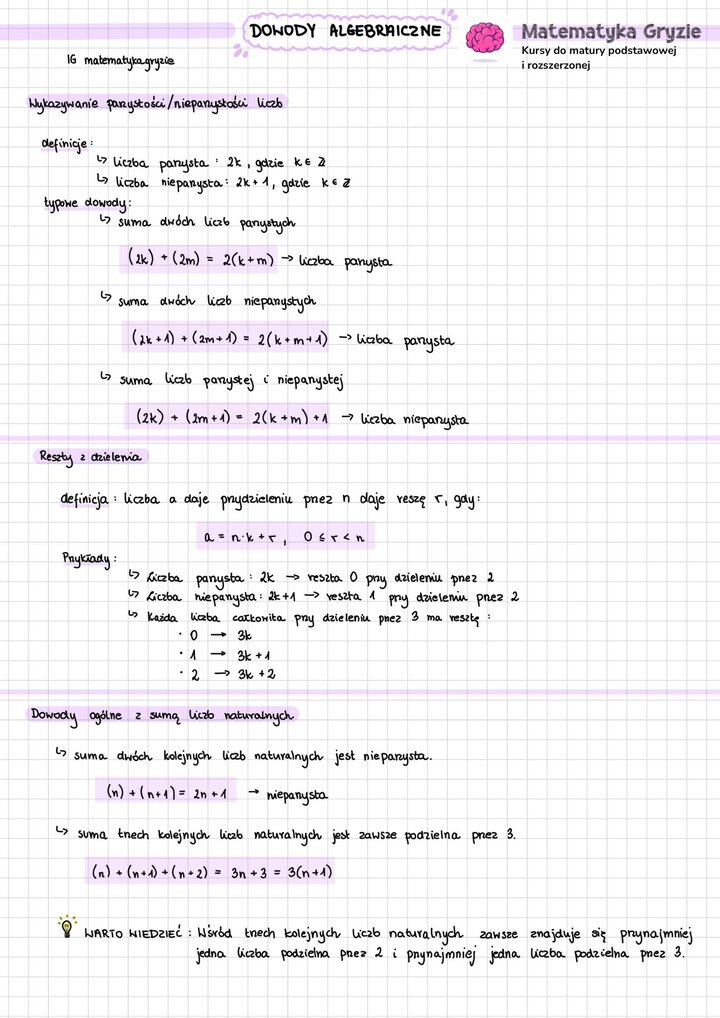 DOWODY ALGEBRAICZNE
Matematyka Gryzie
Kursy do matury podstawowej
i rozszerzonej
IG matematyka.gryzie
Wykazywanie parzystości/nieparzystości liczb
definicje:
↳ liczba parzysta : 2k, gdzie k ∈ Z
↳ liczba nieparzysta: 2k+1, gdzie k ∈ Z
typowe dowody:
↳ suma dwóch liczb parzystych
(2k) + (2m) = 2(k+m) → liczba parzysta
↳ suma dwóch liczb nieparzystych
(2k+1) + (2m+1) = 2(k+m+1) → liczba parzysta
↳ suma liczb parzystej i nieparzystej
(2k) + (2m+1) = 2(k+m)+1 → liczba nieparzysta
Reszty z dzielenia
definicja : liczba a daje przydzieleniu przez n daje reszę r, gdy:
a = n·k + r, 0 ≤ r < n
Przykłady :
↳ Liczba parzysta : 2k → reszta 0 przy dzieleniu przez 2
↳ Liczba nieparzysta: 2k+1 → reszta 1 przy dzieleniu przez 2
↳ Każda liczba całkowita przy dzieleniu przez 3 ma resztę :
· 0 → 3k
· 1 → 3k+1
· 2 → 3k+2
Dowody ogólne z sumą liczb naturalnych
↳ suma dwóch kolejnych liczb naturalnych jest nieparzysta.
(n) + (n+1) = 2n+1 → nieparzysta
↳ suma trzech kolejnych liczb naturalnych jest zawsze podzielna przez 3.
(n) + (n+1) + (n+2) = 3n+3 = 3(n+1)
WARTO WIEDZIEĆ : Wśród trzech kolejnych liczb naturalnych zawsze znajduje się przynajmniej
jedna liczba podzielna przez 2 i przynajmniej jedna liczba podzielna przez 3.